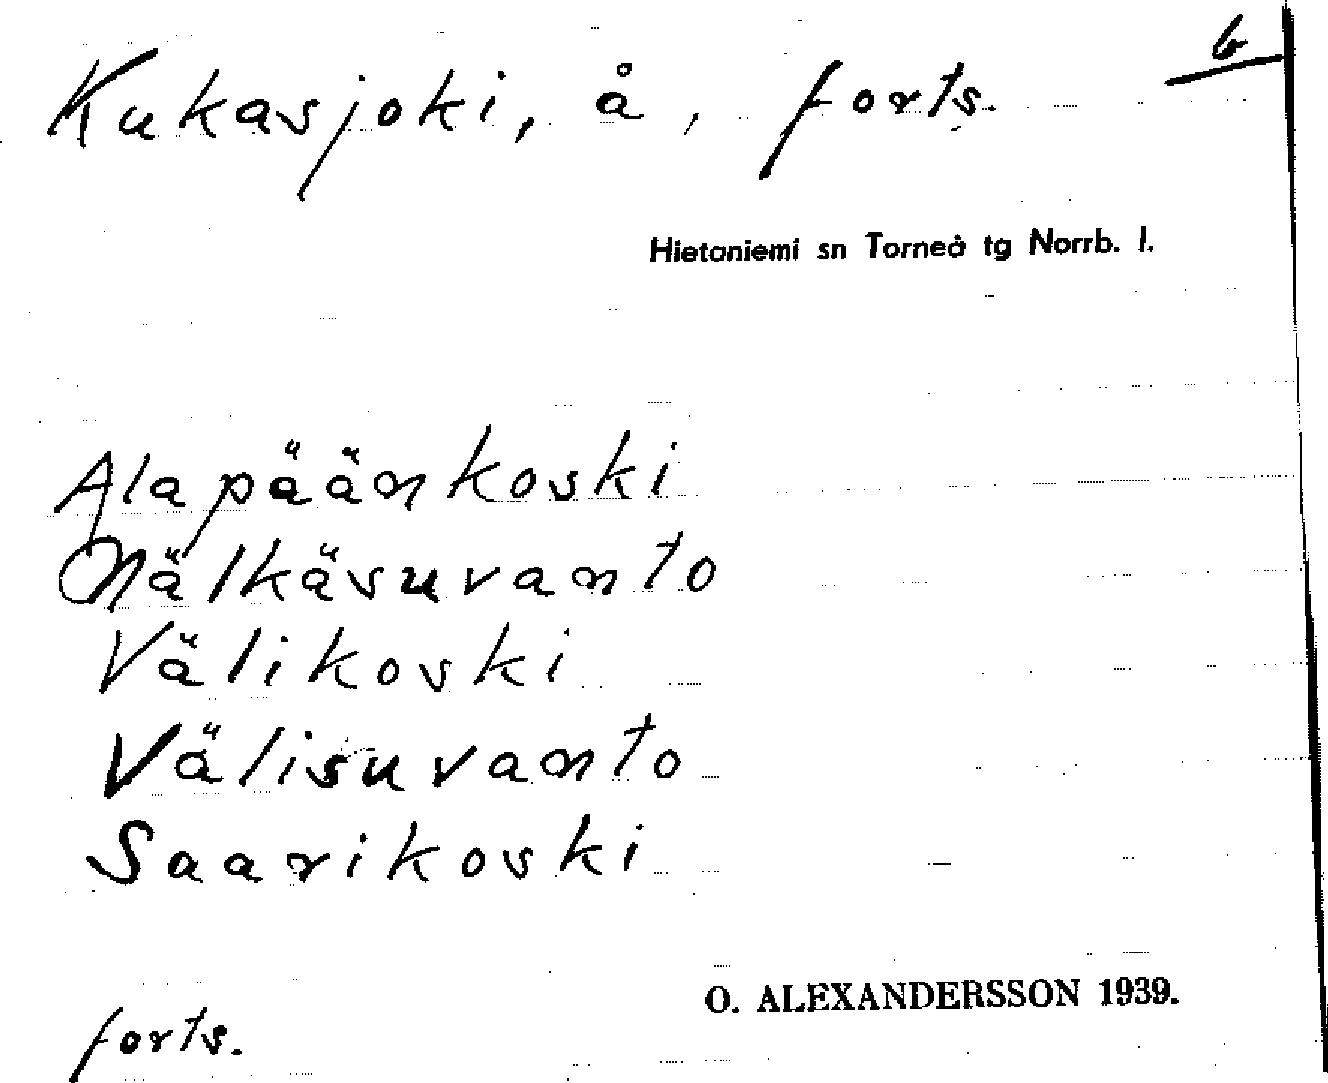 6
Kukasjoki, å, forts.
Hietaniemi sn Torneå tg Norrb. l.
Alapäänkoski
Nälkäsuvanto
Välikoski
Välisuvanto
Saarikoski
O. ALEXANDERSSON 1939.
forts.